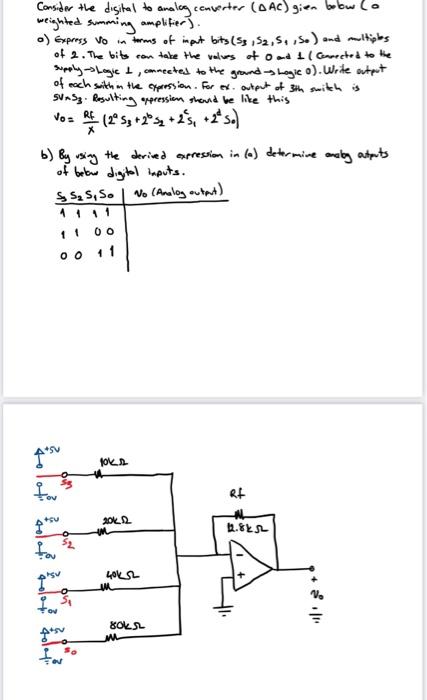 Consider the digital to analog converter (DAC) given below (a
weighted summing amplifier).
a) Express Vo in terms of input bits (S3, S2, S1, So) and multiples
of 2. The bits can take the values of 0 and 1 (Connected to the
supply→Logic 1, connected to the ground→Logic 0). Write output
of each switch in the expression. For ex. output of 3th switch is
5V×S3. Resulting expression should be like this
Vo = Rf/X (2^a S3 + 2^b S2 + 2^c S1 + 2^d So)
b) By using the derived expression in (a) determine analog outputs
of below digital inputs.
S3 S2 S1 So | Vo (Analog output)
1 1 1 1
1 1 0 0
0 0 1 1
+5V
10kΩ
S3
0V
Rf
+5V
20kΩ
12.8kΩ
S2
0V
-
+5V
40kΩ
+
S1
0V
+
Vo
-
+5V
80kΩ
So
0V